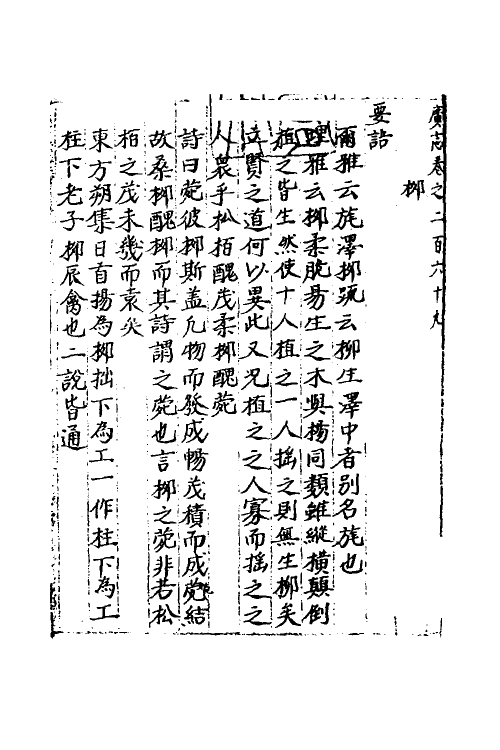 廣志卷之二百六十九
柳
要詰
爾雅云旄澤柳䟽云柳生澤中者别名旄也
埤雅云柳柔脆昜生之木與楊同類雖縱横顛倒
植之皆生然使十人植之一人揺之則無生柳矣
立賢之道何以異此又况植之之人寡而揺之之
人衆乎松栢醜茂柔柳醜菀
詩曰菀彼柳斯盖凢物而發成暢茂積而成菀結
故桑柳醜柳而其詩謂之菀也言柳之菀非若松
栢之茂未㡬而衰矣
東方朔集曰首揚為柳拙下為工一作柱下為工
柱下老子柳辰禽也二說皆通